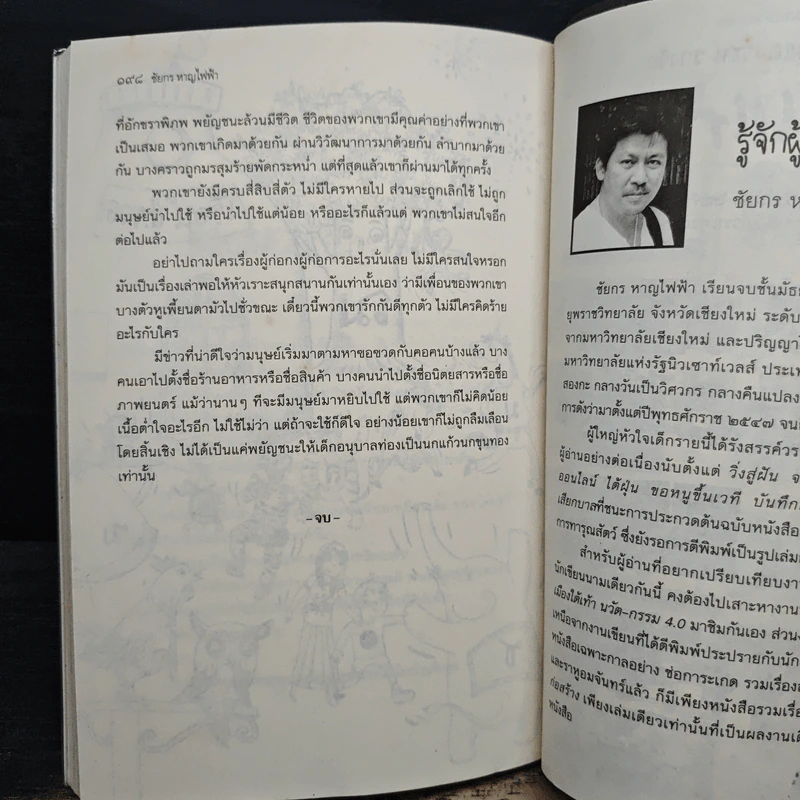 ๑๙๘ ชัยกร หาญไฟฟ้า
ที่อักขราพิภพ พยัญชนะล้วนมีชีวิต ชีวิตของพวกเขามีคุณค่าอย่างที่พวกเขา
เป็นเสมอ พวกเขาเกิดมาด้วยกัน ผ่านวิวัฒนาการมาด้วยกัน ลำบากมาด้วย
กัน บางคราวถูกมรสุมร้ายพัดกระหน่ำ แต่ที่สุดแล้วเขาก็ผ่านมาได้ทุกครั้ง
พวกเขายังมีครบสี่สิบสี่ตัว ไม่มีใครหายไป ส่วนจะถูกเลิกใช้ ไม่ถูก
มนุษย์นำไปใช้ หรือนำไปใช้แต่น้อย หรืออะไรก็แล้วแต่ พวกเขาไม่สนใจอีก
ต่อไปแล้ว
อย่าไปถามใครเรื่องผู้ก่อกงผู้ก่อการอะไรนั่นเลย ไม่มีใครสนใจหรอก
มันเป็นเรื่องเล่าพอให้หัวเราะสนุกสนานกันเท่านั้นเอง ว่ามีเพื่อนของพวกเขา
บางตัวหูเพี้ยนตามัวไปชั่วขณะ เดี๋ยวนี้พวกเขารักกันดีทุกตัว ไม่มีใครคิดร้าย
อะไรกับใคร
มีข่าวที่น่าดีใจว่ามนุษย์เริ่มมาตามหาซอขวดกับคอคนบ้างแล้ว บาง
คนเอาไปตั้งชื่อร้านอาหารหรือชื่อสินค้า บางคนนำไปตั้งชื่อนิตยสารหรือชื่อ
ภาพยนตร์ แม้ว่านานๆ ทีจะมีมนุษย์มาหยิบไปใช้ แต่พวกเขาก็ไม่คิดน้อย
เนื้อต่ำใจอะไรอีก ไม่ใช้ไม่ว่า แต่ถ้าจะใช้ก็ดีใจ อย่างน้อยเขาก็ไม่ถูกลืมเลือน
โดยสิ้นเชิง ไม่ได้เป็นแค่พยัญชนะให้เด็กอนุบาลท่องเป็นนกแก้วนกขุนทอง
เท่านั้น
-จบ-
รู้จักผู้
ชัยกร ห
ชัยกร หาญไฟฟ้า เรียนจบชั้นมัธย
ยุพราชวิทยาลัย จังหวัดเชียงใหม่ ระดับ
จากมหาวิทยาลัยเชียงใหม่ และปริญญาโ
มหาวิทยาลัยแห่งรัฐนิวเซาท์เวลส์ ประเท
สองกะ กลางวันเป็นวิศวกร กลางคืนแปลง
การดังว่ามาตั้งแต่ปีพุทธศักราช ๒๕๔๗ จน
ผู้ใหญ่หัวใจเด็กรายนี้ได้รังสรรค์วร
ผู้อ่านอย่างต่อเนื่องนับตั้งแต่ วิ่งสู่ฝัน จ
ออนไลน์ ไต้ฝุ่น ขอหนูขึ้นเวที บันทึก
เสียกบาลที่ชนะการประกวดต้นฉบับหนังสือ
การทารุณสัตว์ ซึ่งยังรอการตีพิมพ์เป็นรูปเล่ม
สำหรับผู้อ่านที่อยากเปรียบเทียบงา
นักเขียนนามเดียวกันนี้ คงต้องไปเสาะหางาน
เมืองใต้เท้า นวัต-กรรม 4.0 มาชิมกันเอง ส่วน
เหนือจากงานเขียนที่ได้ตีพิมพ์ประปรายกับนัก
หนังสือเฉพาะกาลอย่าง ช่อการะเกด รวมเรื่อง
และราหูอมจันทร์แล้ว ก็มีเพียงหนังสือรวมเรื่อ
ก่อสร้าง เพียงเล่มเดียวเท่านั้นที่เป็นผลงานเดี
หนังสือ